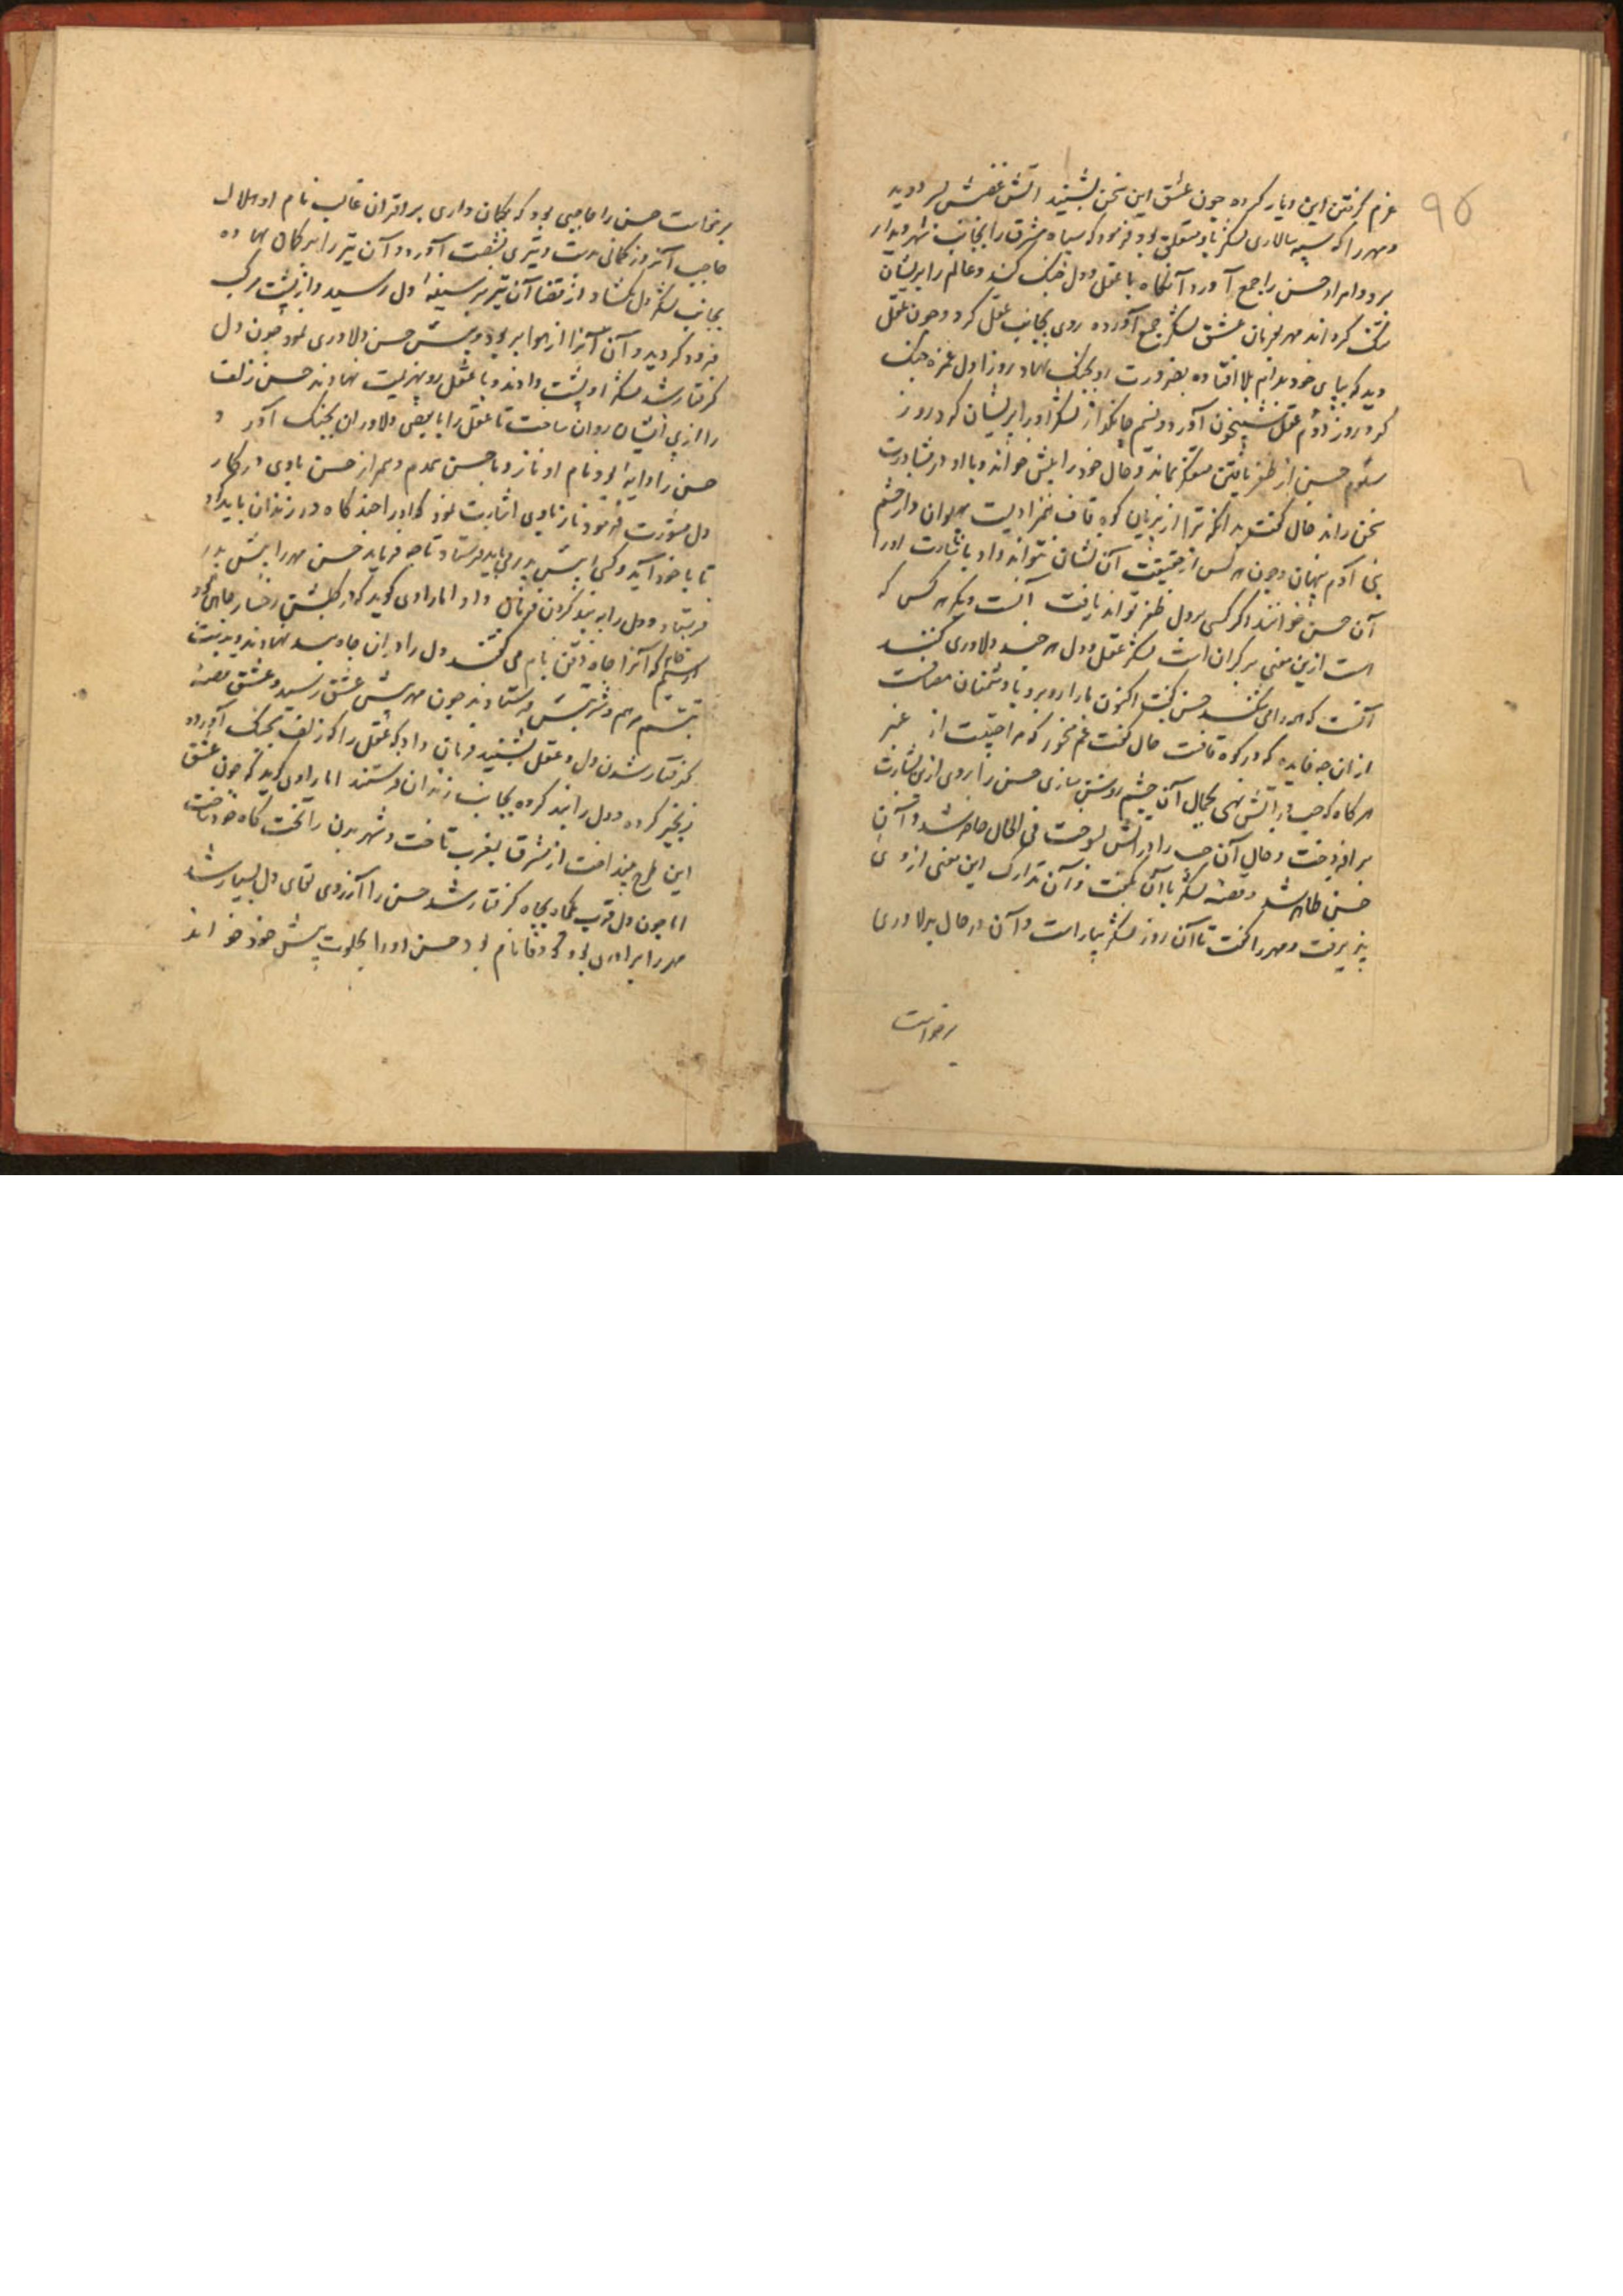 ۹۵
عزم کرفتن این دیار کرده چون عشق این سخن بشنید اتش غضبش بر دوید
و مهر را که سپه سالاری لشکر باو متعلق بود فرمود که سپاه مشرق را بجانب شهر دیدار
برد و امراد حسن را جمع آورد آنکاه با عقل و دل جنک کند و عالم را بریشان
تنک کرداند مهر بفرمان عشق لشکر جمع آورده روی بجانب عقل کرد و چون عقل
دید که بپای خود بدام بلا افتاده بضرورت رو بجنک نهاد روز اول غمزه جنک
کرد روز دوم عقل شبیخون آورد و نسیم چابکو از لشکر او را بریشان کرد روز
سیوم حسن از ظفر یافتن متفکر بماند و خال خود را بیش خواند و با او در مشاورت
سخن راند خال کفت بدانکه ترا از پریان کوه قاف همزادیست پهلوان و از چشم
بنی آدم پنهان و چون هر کس از حقیقت آن نشان نتواند داد باشارت او را
آن حسن خوانند اکر کسی بر دل ظفر تواند یافت آنست و دیکر هر کس که
هست ازین معنی بر کران است لشکر عقل و دل هر چند دلاوری کنند
آنست که همه را می کشد حسن کفت اکنون ما را روبرو با دشمنان مصافست
ازان چه فایده که در کوه قافست خال کفت غم مخور که مرا حبیست از عنبر
هر کاه که حبه در آتش نهی بجمال آن چشم روشن سازی حسن را روی ازین بشارت
بر افروخت و خال آن حبه را در اتش بسوخت فی الحال حاضر شد و آن
حسن ظاهر شد و قصه لشکر با آن بکفت و آن تدارک این معنی از وی
پذیرفت و مهر را کفت تا آن روز لشکر بیاراست و آن در حال بدلاوری
برخواست
برخاست حسن را حاجبی بود که بکمان داری بر اقران غالب نام او هلال
حاجب آنروز کمانی بدست و تیری بشصت آورد و آن تیر را بر کمان نهاده
بجانب لشکر دل کشاد از قضا آن تیر بر سینه دل رسید و از پشت مرکب
فرود کردید و آن آنرا از هوا بربود و بیش حسن دلاوری نمود چون دل
کرفتار شد لشکر او پشت دادند و با عقل رو بهزیمت نهادند حسن زلف
را از پی ایشان روان ساخت تا عقل را با بعضی دلاوران بجنک آورد
حسن را دایه بود نام او ناز و با حسن همدم و همراز حسن باوی در کار
دل مشورت فرمود ناز باوی اشارت نمود که او را چند کاه در زندان باید داد
تا با خود آید و کسی را بیش پدر می باید فرستاد تا چه فرماید حسن مهر را بیش پدر
فرستاد و دل را به بند کردن فرمان داد اما راوی کوید که در کلشن رخسار چاهی بود
سیم فام که آنرا چاه ذقن نام می کفتند دل را دران چاه بند نهادند و بدست
تبسم مرهم و شربتش فرستادند چون مهر پیش عشق رسید و عشق قصه
کرفتار شدن دل و عقل بشنید فرمان داد که عقل را که زلف بجنک آورده
زنجیر کرده و دل را بند کرده بجانب زندان فرستند اما راوی کوید که چون عشق
این طرح بینداخت از مشرق بمغرب تاخت و شهر بدن را تخت کاه خود ساخت
اما چون دل قرب یکماه بچاه کرفتار شد حسن را آرزوی لقای دل بسیار شد
مهر را برادری بود که وفا نام بود حسن او را بخلوت پیش خود خواند